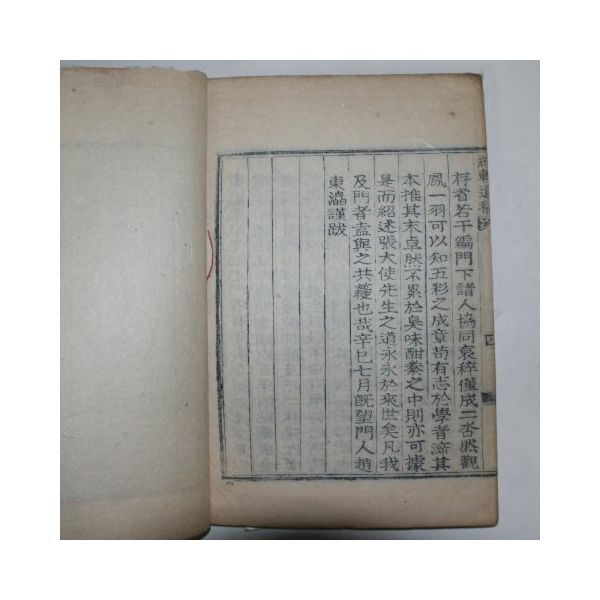 存者若干編門下諸人協同裒稡僅成二呇然觀
鳳一羽可以知五彩之成章苟有志於學者泝其
本推其末卓然不累於臭味酣豢之中則亦可據
是而紹述張大使先生之道永永於來世矣凡我
及門者盍與之共蘉也哉辛巳七月旣望門人趙
東㶏謹跋